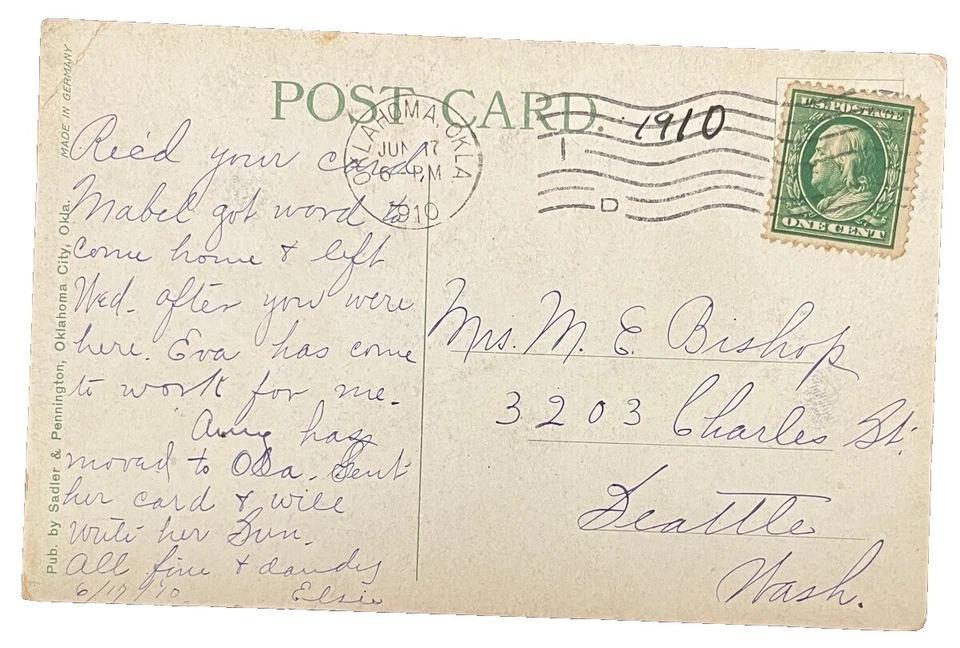 POST CARD.
MADE IN GERMANY
Pub. by Sadler & Pennington, Oklahoma City, Okla.
OKLAHOMA, OKLA.
JUN 17
6 PM
1910
D
1910
U.S. POSTAGE
ONE CENT
Rec'd your card,
Mabel got word to
come home & left
Wed. after you were
here. Eva has come
to work for me.
Amy has
moved to Ola. Sent
her card & will
write her Sun.
All fine & dandy
6/17 '10. Elsie
Mrs. M. E. Bishop
3203 Charles St.
Seattle
Wash.